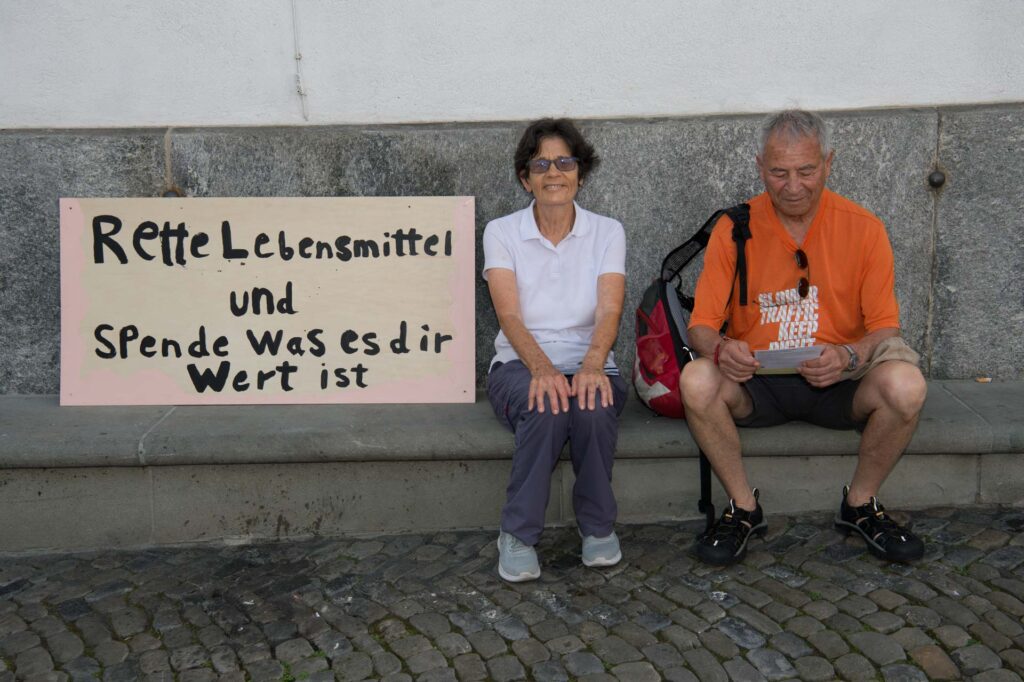 Rette Lebensmittel
und
Spende Was es dir
Wert ist
SLOWER
TRAFFIC
KEEP
RIGHT